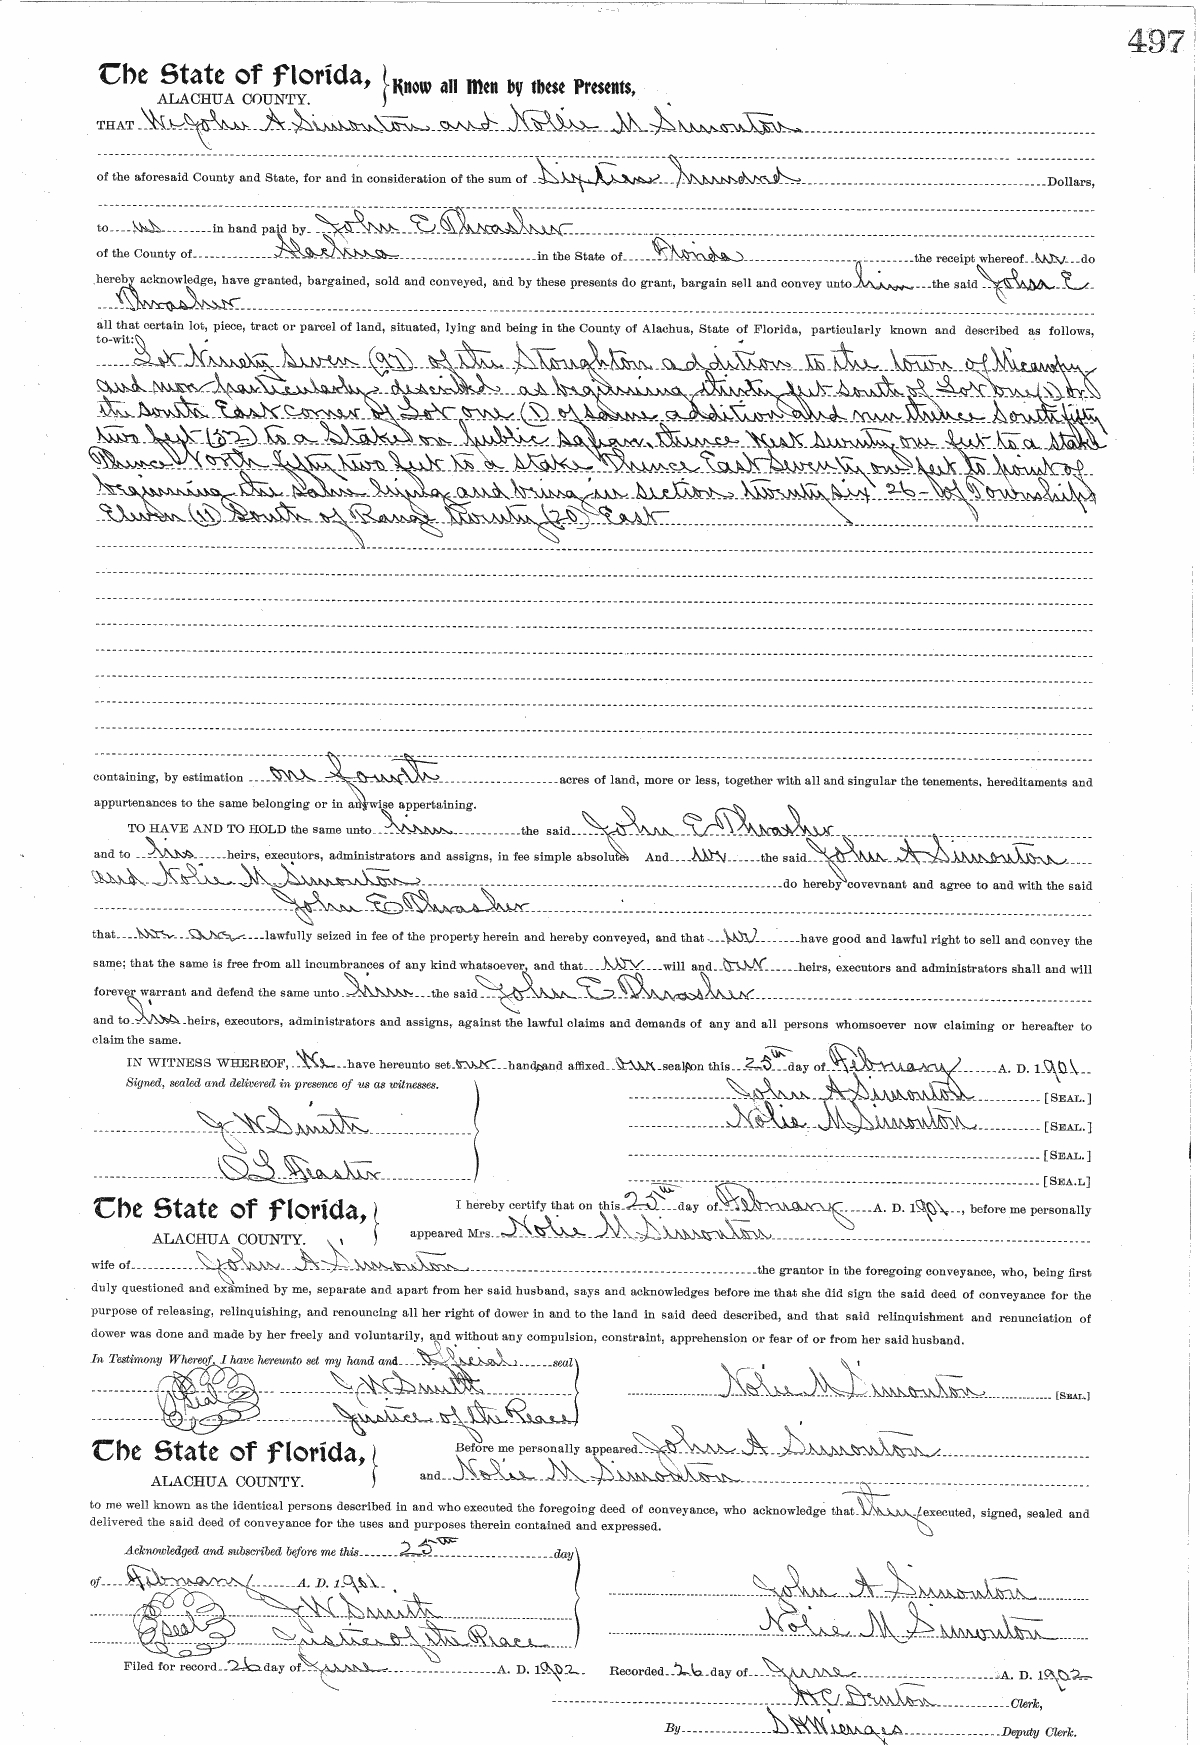 497
The State of Florida, Know all Men by these Presents,
ALACHUA COUNTY.
THAT We John A Simonton and Nollie M Simonton
of the aforesaid County and State, for and in consideration of the sum of Sixteen hundred Dollars,
to us in hand paid by John E Thrasher
of the County of Alachua in the State of Florida the receipt whereof we do
hereby acknowledge, have granted, bargained, sold and conveyed, and by these presents do grant, bargain sell and convey unto him the said John E
Thrasher
all that certain lot, piece, tract or parcel of land, situated, lying and being in the County of Alachua, State of Florida, particularly known and described as follows,
to-wit:
Lot Ninety Seven (97) of the Stoughton addition to the town of Micanopy
and more particularly described as beginning thirty feet south of Lot one (1) on
the south East corner of Lot one (1) of same addition and run thence South fifty
two feet (52) to a Stake on public square, thence West seventy one feet to a stake
Thence North fifty two feet to a stake Thence East Seventy one feet to point of
beginning the same lying and being in section twenty six 26 of Township
Eleven (11) South of Range twenty (20) East
containing, by estimation one fourth acres of land, more or less, together with all and singular the tenements, hereditaments and
appurtenances to the same belonging or in anywise appertaining.
TO HAVE AND TO HOLD the same unto him the said John E Thrasher
and to his heirs, executors, administrators and assigns, in fee simple absolute. And we the said John A Simonton
and Nolie M Simonton do hereby covevnant and agree to and with the said
John E Thrasher
that we are lawfully seized in fee of the property herein and hereby conveyed, and that we have good and lawful right to sell and convey the
same; that the same is free from all incumbrances of any kind whatsoever, and that we will and our heirs, executors and administrators shall and will
forever warrant and defend the same unto him the said John E Thrasher
and to his heirs, executors, administrators and assigns, against the lawful claims and demands of any and all persons whomsoever now claiming or hereafter to
claim the same.
IN WITNESS WHEREOF, We have hereunto set our hands and affixed our seals on this 25th day of February A. D. 1901
Signed, sealed and delivered in presence of us as witnesses.
John A Simonton [SEAL.]
J W Smith Nolie M Simonton [SEAL.]
[SEAL.]
O L Feaster [SEA.L]
The State of Florida, I hereby certify that on this 25th day of February A. D. 1901, before me personally
ALACHUA COUNTY. appeared Mrs. Nolie M Simonton
wife of John A Simonton the grantor in the foregoing conveyance, who, being first
duly questioned and examined by me, separate and apart from her said husband, says and acknowledges before me that she did sign the said deed of conveyance for the
purpose of releasing, relinquishing, and renouncing all her right of dower in and to the land in said deed described, and that said relinquishment and renunciation of
dower was done and made by her freely and voluntarily, and without any compulsion, constraint, apprehension or fear of or from her said husband.
In Testimony Whereof, I have hereunto set my hand and official seal
Seal J W Smith Nolie M Simonton [SEAL.]
Justice of the Peace
The State of Florida, Before me personally appeared John A Simonton
ALACHUA COUNTY. and Nolie M Simonton
to me well known as the identical persons described in and who executed the foregoing deed of conveyance, who acknowledge that they executed, signed, sealed and
delivered the said deed of conveyance for the uses and purposes therein contained and expressed.
Acknowledged and subscribed before me this 25th day
of February A. D. 1901. John A Simonton
Seal J W Smith Nolie M Simonton
Justice of the Peace
Filed for record 26 day of June A. D. 1902 Recorded 26 day of June A. D. 1902
H C Denton Clerk,
By S H Wienges Deputy Clerk.